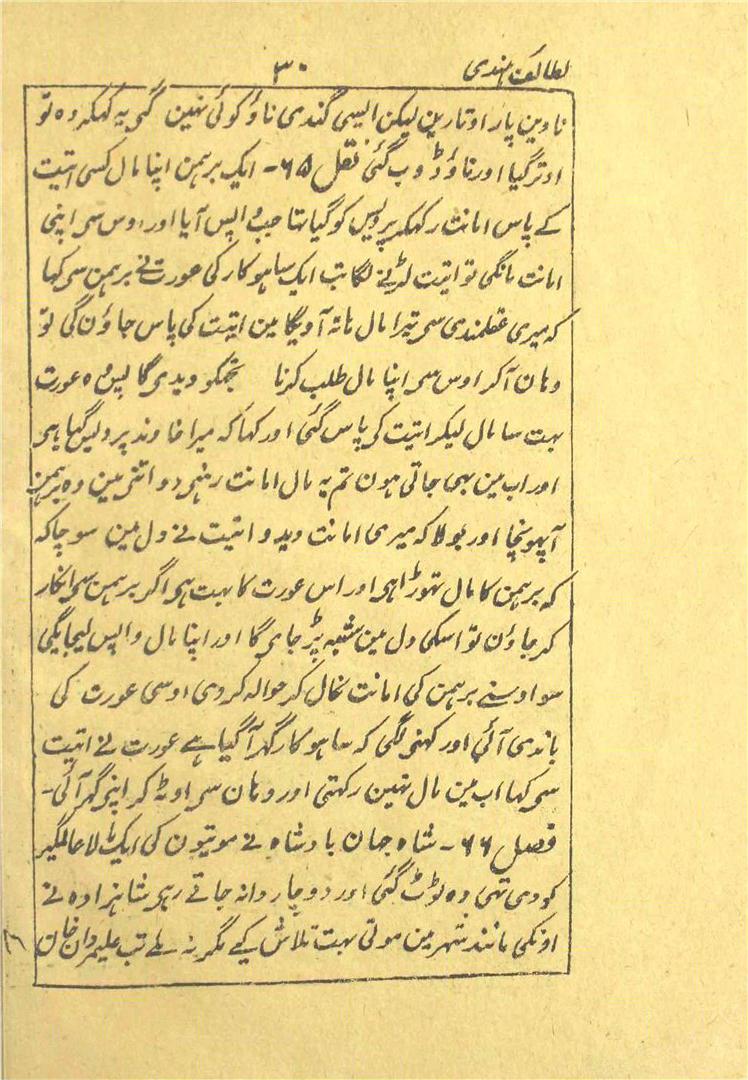 لطائف ہندی ۳۰
ناوین پار اوتارین لیکن ایسی گندی ناؤ کوئی نہین گئی یہ کہکر وہ تو
اوترگیا اور ناؤ ڈوب گئی نقل ۶۵- ایک برہمن اپنا مال کسی اتیت
کے پاس امانت رکہکر پردیس کو گیا تہا جب واپس آیا اور اوس سی اپنی
امانت مانگی تو اتیت لڑنے لگا تب ایک ساہوکار کی عورت نے برہمن سی کہا
کہ میری عقلمندی سی تیرا مال ہاتہ آویگا مین اتیت کی پاس جاؤن گی تو
وہان آکر اوس سی اپنا مال طلب کرنا تجہکو دیدی گا پس وہ عورت
بہت سا مال لیکر اتیت کی پاس گئی اور کہا کہ میرا خاوند پردیس گیا ہی
اور اب مین بہی جاتی ہون تم یہ مال امانت رہنی دو اتنی مین وہ برہمن
آپہونچا اور بولا کہ میری امانت دیدو اتیت نے دل مین سوچا کہ
کہ برہمن کا مال تہوڑا ہی اور اس عورت کا بہت ہی اگر برہمن سی انکار
کرجاؤن تو اسکی دل مین شبہ پڑ جای گا اور اپنا مال واپس لیجایگی
سو اوسنے برہمن کی امانت نکال کر حوالہ کردی اوسی عورت کی
باندی آئی اور کہنی لگی کہ ساہوکار گہر آگیا ہے عورت نے اتیت
سی کہا اب مین مال نہین رکہتی اور وہان سی اوٹہ کر اپنی گہر آئی-
فصل ۶۶- شاہ جہان بادشاہ نے موتیون کی ایک مالا عالمگیر
کو دی تہی وہ ٹوٹ گئی اور دو چار دانہ جاتے رہی شاہزادہ نے
اونکی مانند شہر مین موتی بہت تلاش کیے مگر نہ ملے تب علیمردان خان